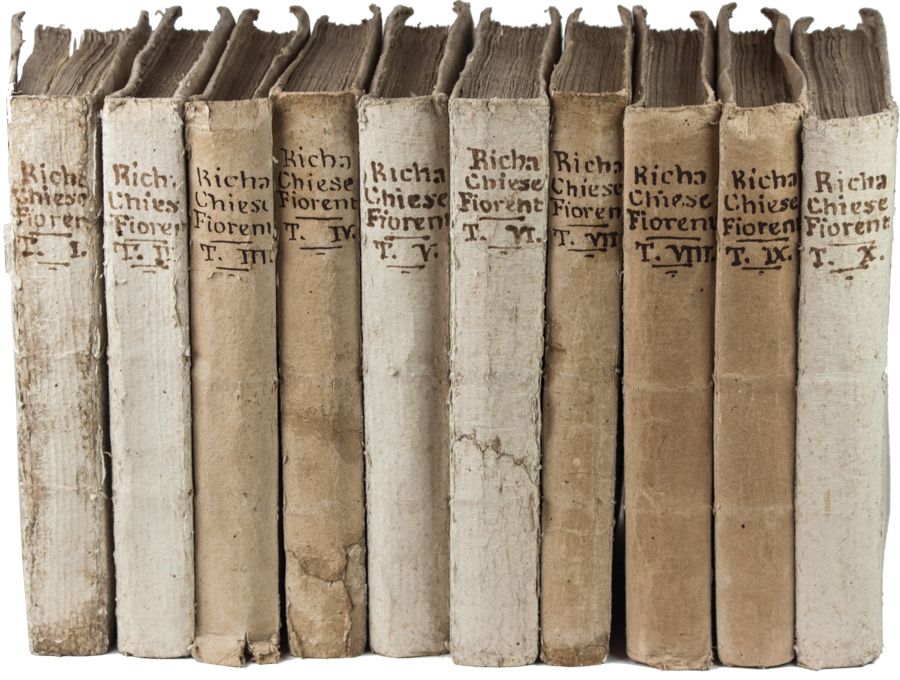 Richa
Chiese
Fiorent
T. I.
Rich.
Chies
Fioren
T. II.
Richa
Chiese
Fiorent
T. III.
Richa
Chiese
Fiorent
T. IV.
Richa
Chiese
Fiorent
T. V.
Richa
Chiese
Fiorent
T. VI.
Richa
Chiese
Fioren
T. VII
Richa
Chiese
Fiorent
T. VIII.
Richa
Chiese
Fiorent
T. IX.
Richa
Chiese
Fiorent
T. X.